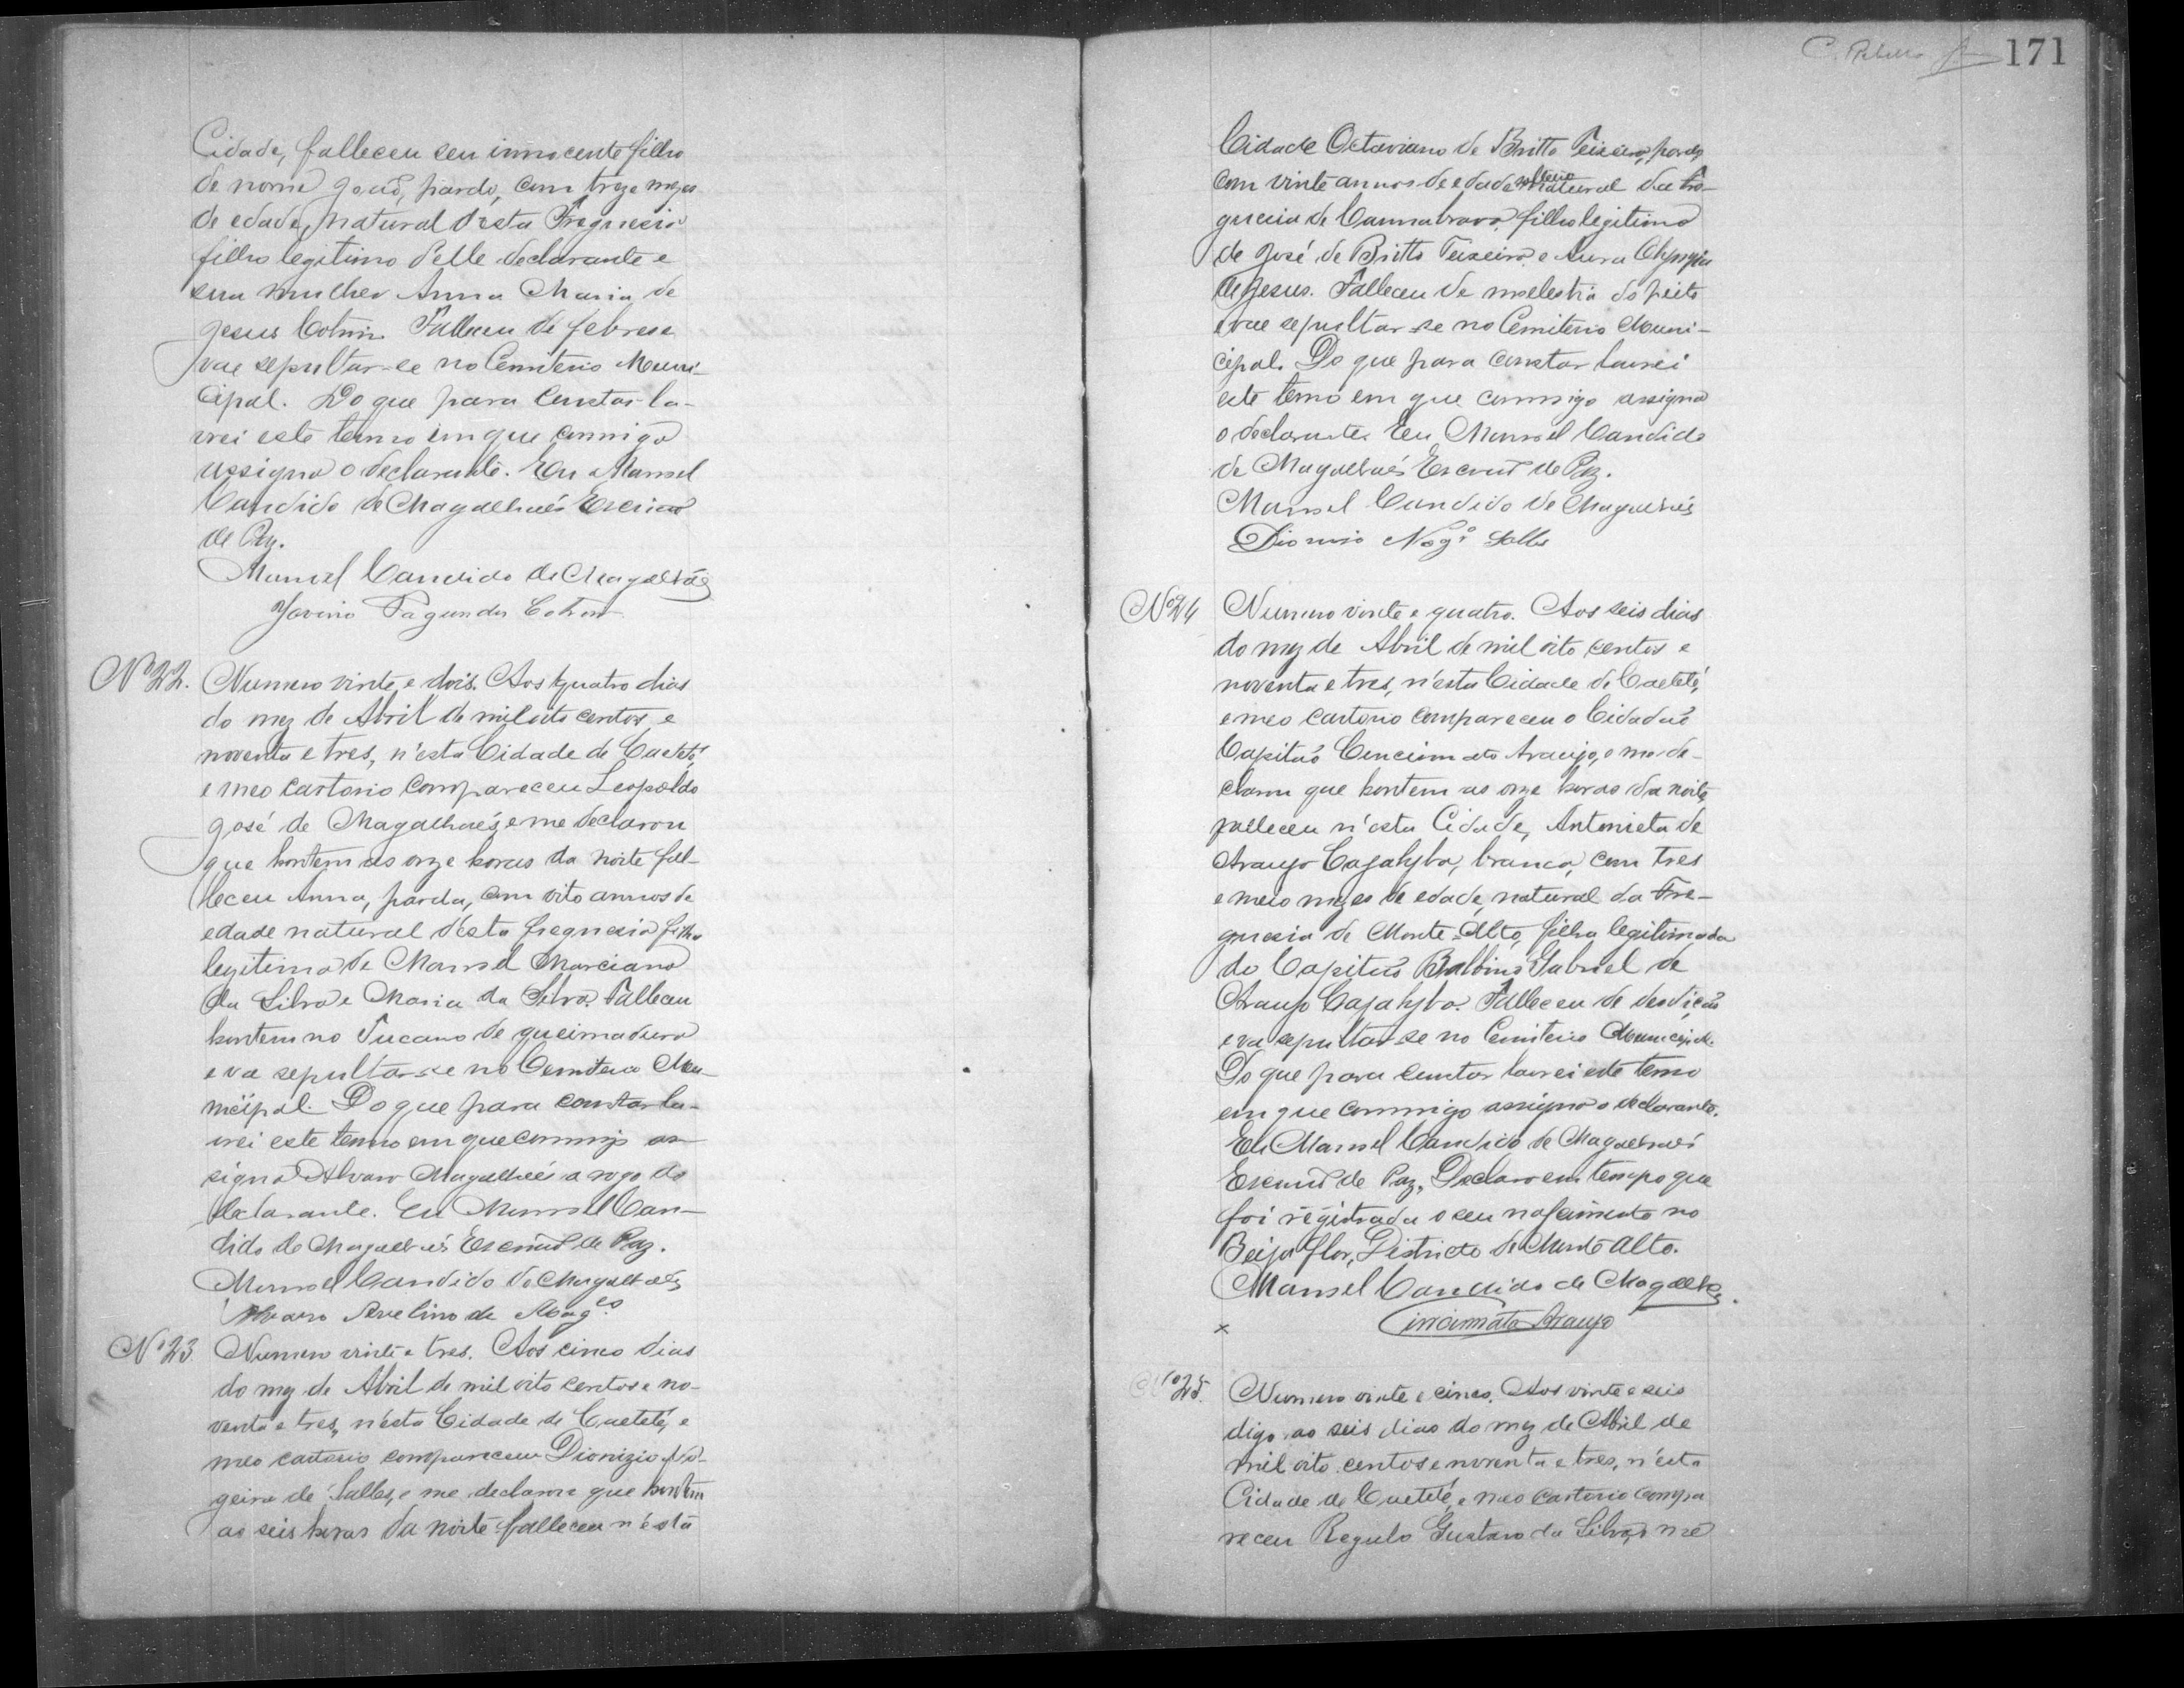 Cidade, falleceu seu innocente filho
de nome João, pardo, com treze mezes
de edade, natural d'esta Freguesia
filho legitimo delle declarante e
sua mulher Anna Maria de
Jesus Cotrim. Falleceu de febres e
vae sepultar-se no Cemiterio Muni-
cipal. Do que para constar la-
vrei este termo em que commigo
assigna o declarante. Eu Manoel
Candido de Magalhaés Escrivaõ
de Paz.
Manoel Candido de Magalhães
Jovino Fagundes Cotrim
Nº 22. Numero vinte e dois. Aos quatro dias
do mez de Abril de mil oito centos e
noventa e tres, n'esta Cidade de Caeteté,
e meo cartorio compareceu Leopoldo
José de Magalhaés, e me declarou
que hontem as onze horas da noite fal-
leceu Anna, parda, com oito annos de
edade natural d'esta freguesia filha
legitima de Manoel Marciano
da Silva e Maria da Silva. Falleceu
hontem no Tucano de queimadura
e vae sepultar-se no Cemiterio Mu-
nicipal. Do que para constar la-
vrei este termo em que commigo as-
signa Alvaro Magalhaés a rogo do
declarante. Eu Manoel Can-
dido de Magalhaés Escrivaõ de Paz.
Manoel Candido de Magalhaés
Alvaro Avelino de Mag.es
Nº 23 Numero vinte e tres. Aos cinco dias
do mez de Abril de mil oito centos e no-
venta e tres, n'esta Cidade de Caeteté, e
meo cartorio compareceu Dionizio No-
geira de Salles, e me declarou que hontem
as seis horas da noite falleceu n'esta
171
Cidade Octaviano de Britto Teixeira, pardo,
com vinte annos de edade solteiro natural da fre-
guesia de Cannabrava, filho legitimo
de José de Britto Teixeira e Aura Olympia
de Jesus. Falleceu de molestia do peito
e vae sepultar-se no Cemiterio Muni-
cipal. Do que para constar lavrei
este termo em que commigo assigna
o declarante. Eu Manoel Candido
de Magalhaés Escrivaõ de Paz.
Manoel Candido de Magalhaés
Dionisio Nog.ª Salles
Nº 24 Numero vinte e quatro. Aos seis dias
do mez de Abril de mil oito centos e
noventa e tres, n'esta Cidade de Caeteté,
e meo cartorio compareceu o Cidadaõ
Capitaõ Cincinnato Araujo, e me de-
clarou que hontem as onze horas da noite
falleceu n'esta Cidade, Antonieta de
Araujo Cajahyba, branca, com tres
e meio mezes de edade, natural da Fre-
guesia de Monte-Alto, filha legitimada
do Capitaõ Balbino Gabriel de
Araujo Cajahyba. Falleceu de dentiçaõ
e vae sepultar-se no Cemiterio Municipal.
Do que para constar lavrei este termo
em que commigo assigna o declarante.
Eu Manoel Candido de Magalhaés
Escrivaõ de Paz. Declaro em tempo que
foi registrada o seu nascimento no
Beija flor, Districto de Monte Alto.
Manoel Candido de Magalhães.
x Cincinnato Araujo
Nº 25. Numero vinte e cinco. Aos vinte e seis
digo ao seis dias do mez de Abril de
mil oito centos e noventa e tres, n'esta
Cidade de Caeteté, e meo cartorio compa
receu Regulo Gustavo da Silva, e me